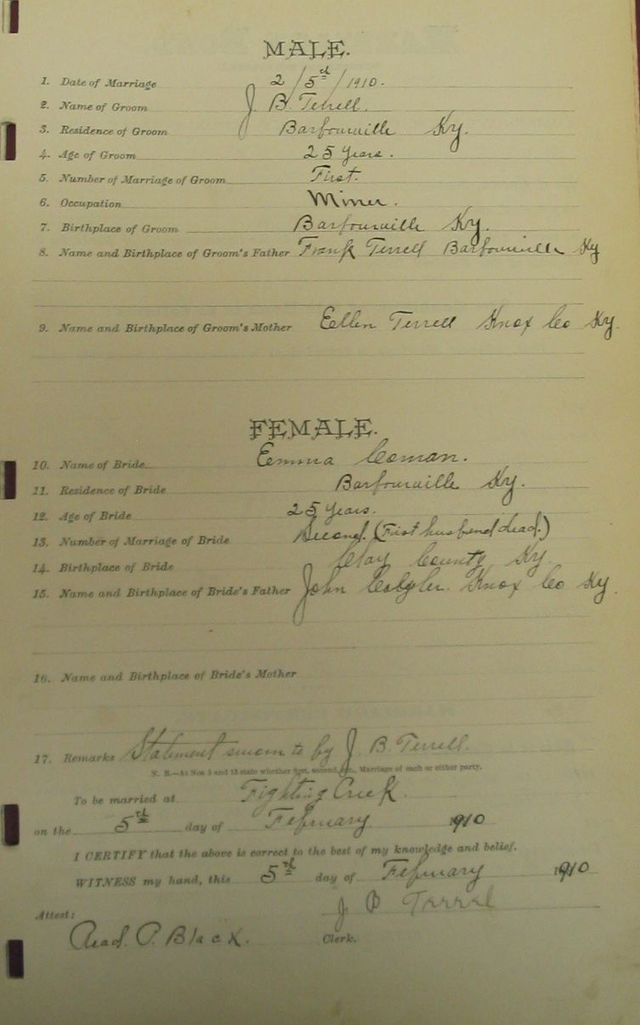 MALE.
1. Date of Marriage 2/5th/1910.
2. Name of Groom J. B. Terrell.
3. Residence of Groom Barbourville Ky.
4. Age of Groom 25 years.
5. Number of Marriage of Groom First.
6. Occupation Miner.
7. Birthplace of Groom Barbourville Ky.
8. Name and Birthplace of Groom's Father Frank Terrell Barbourville Ky
9. Name and Birthplace of Groom's Mother Eellen Terrell Knox Co Ky.
FEMALE.
10. Name of Bride Eemma Coman.
11. Residence of Bride Barbourville Ky.
12. Age of Bride 25 years.
13. Number of Marriage of Bride Second (First husband dead.)
14. Birthplace of Bride Clay County Ky
15. Name and Birthplace of Bride's Father John Knox Co Ky.
16. Name and Birthplace of Bride's Mother
17. Remarks Statement sworn to by J. B. Terrell.
N. B.—At Nos 5 and 13 state whether first, second, etc., Marriage of each or either party.
To be married at Fighting Creek.
on the 5th day of February 1910
I CERTIFY that the above is correct to the best of my knowledge and belief.
WITNESS my hand, this 5th day of February 1910
J B Terrel
Attest:
Read P. Black. Clerk.